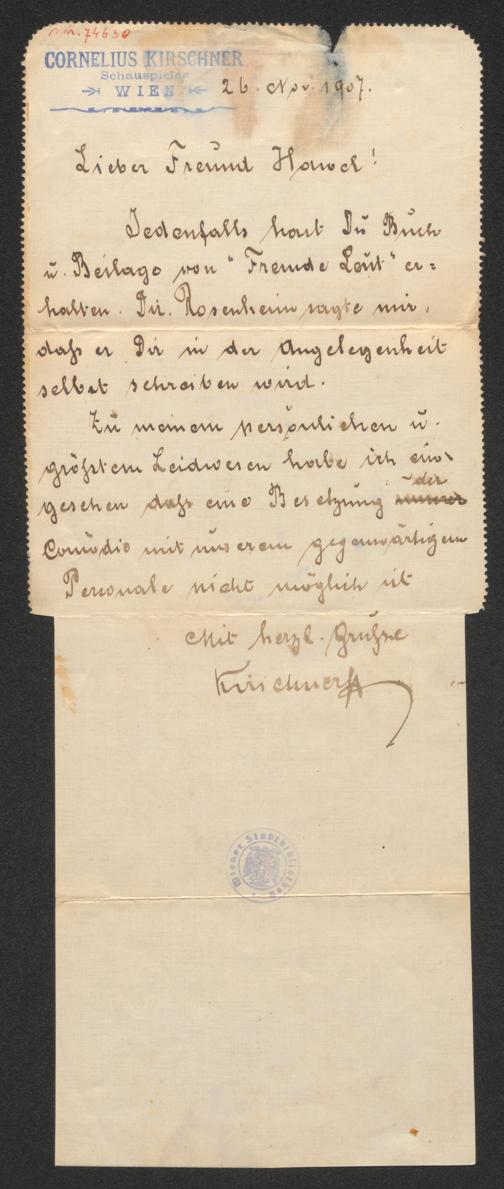 I.N. 74630
CORNELIUS KIRSCHNER
Schauspieler
WIEN
26. Nov. 1907.
Lieber Freund Hawel!
Jedenfalls hast Du Buch
u. Beilage von "Fremde Leut" er=
halten. Dir. Rosenheim sagte mir,
dahs er Dir in der Angelegenheit
selbst schreiben wird.
Zu meinem persönlichen u.
gröhstem Leidwesen habe ich ein-
gesehen dahs eine Besetzung der
Comödie mit unserem gegenwärtigem
Personale nicht möglich ist
Mit herzl. Gruhse
Kirschner
Wiener Stadtbibliothek